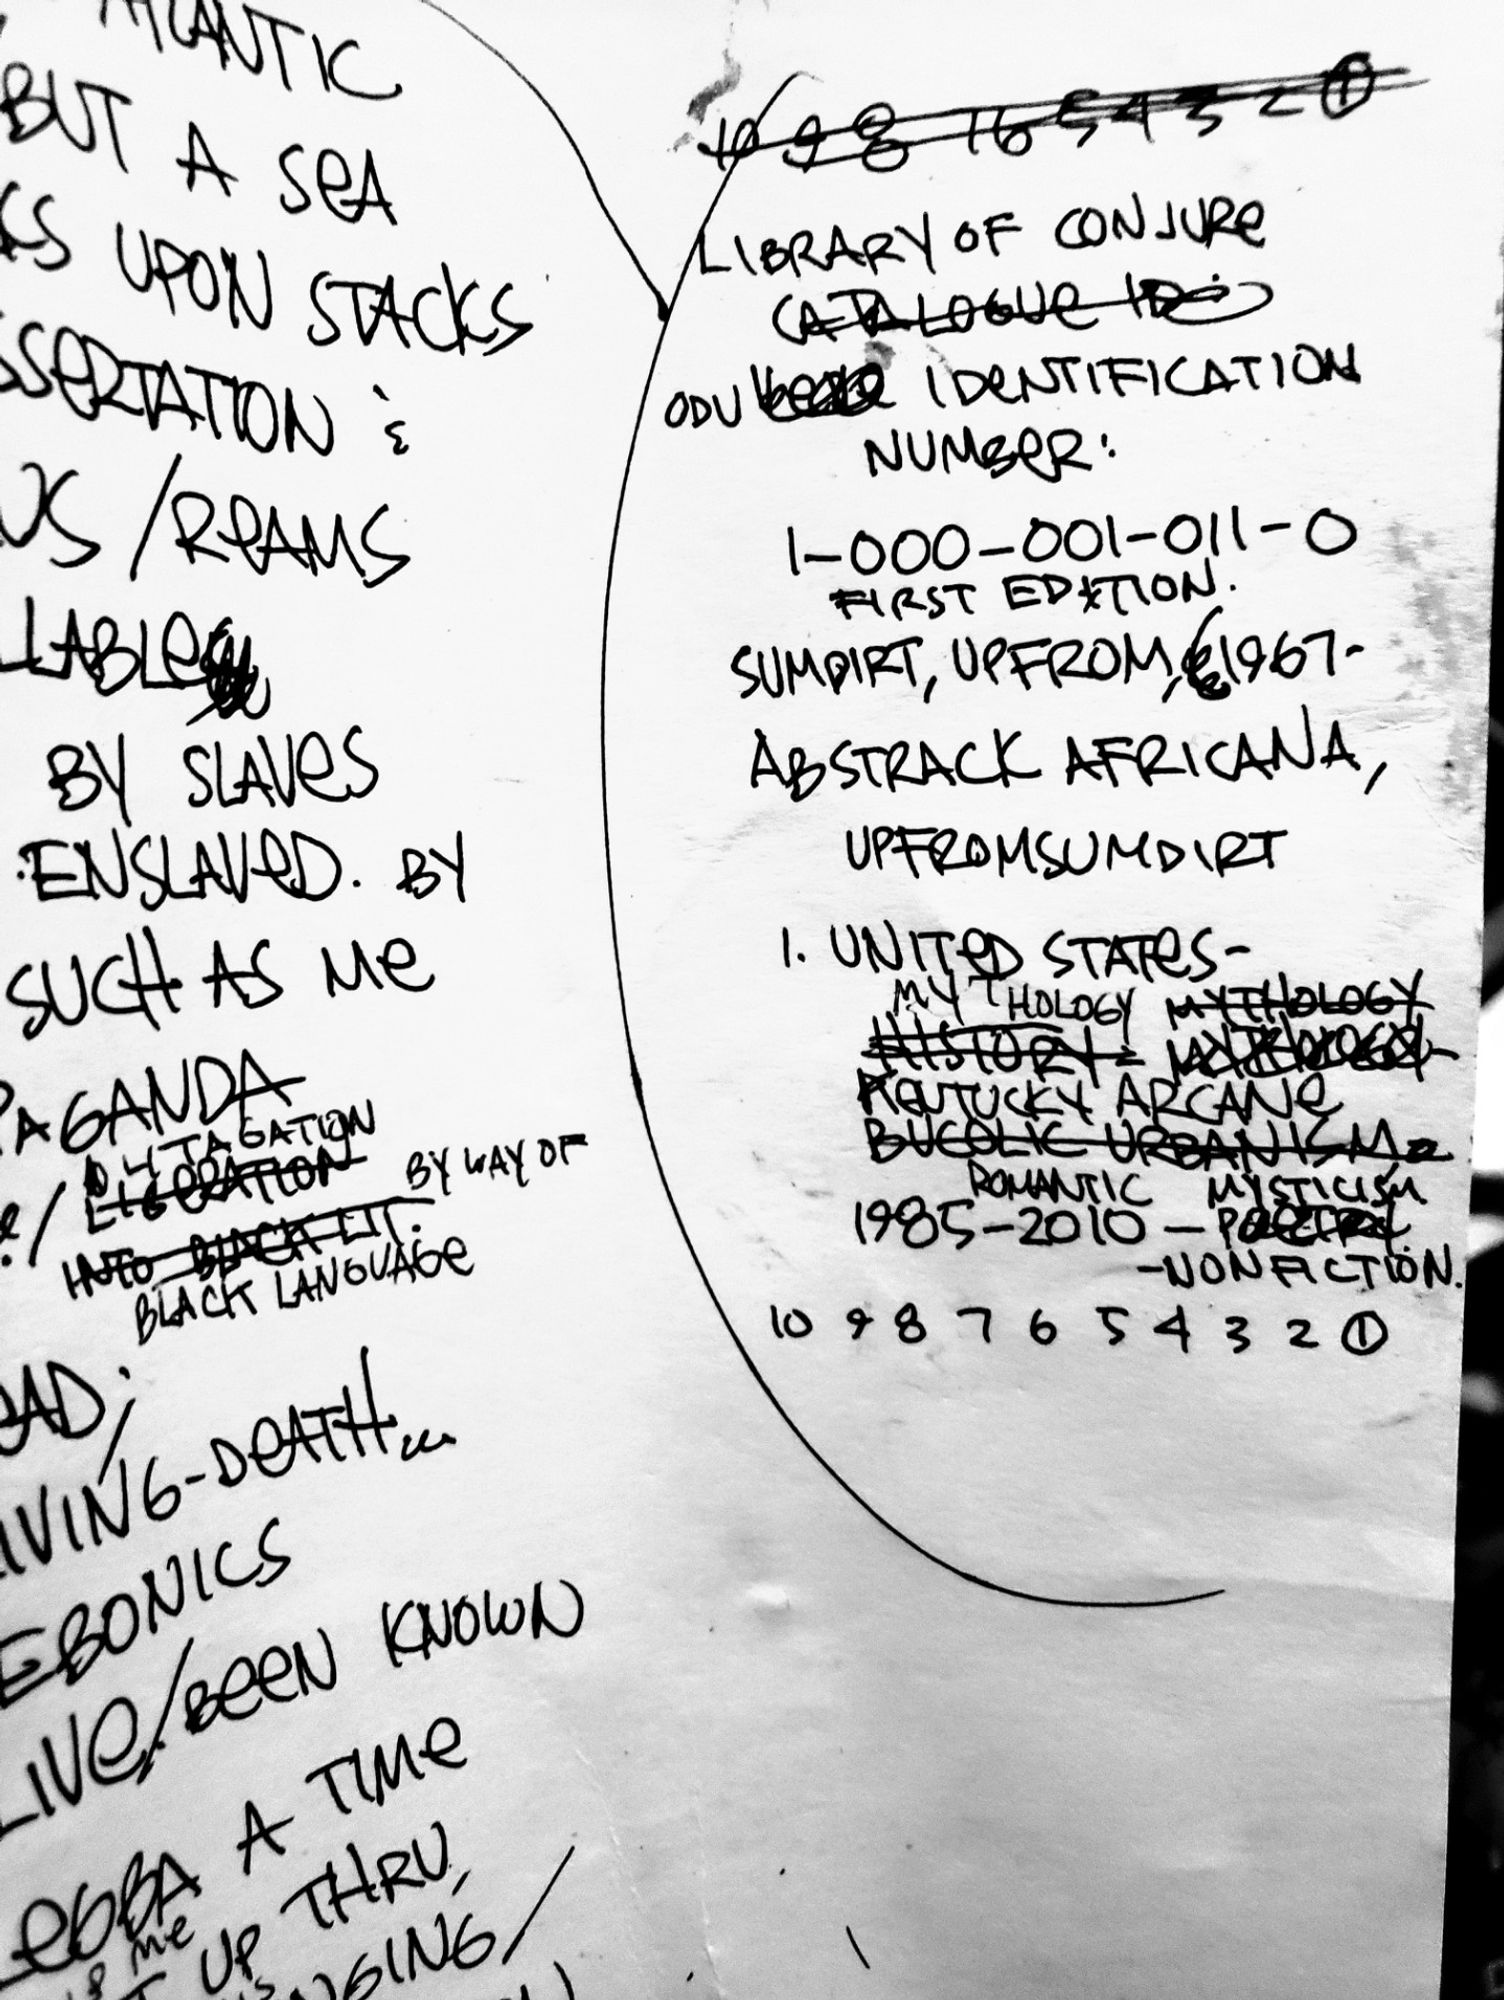 ATLANTIC
BUT A SEA
UPON STACKS
SSERTATION &
US / REAMS
LLABLE
BY SLAVES
ENSLAVED. BY
SUCH AS ME
PAGANDA
LIBERATION
BY WAY OF
INTO BLACK LIT.
BLACK LANGUAGE
IVING-DEATH...
EBONICS
LIVE/BEEN KNOWN
LEGBA A TIME
ME
UP THRU,
NGING/
10 9 8 7 6 5 4 3 2 1
LIBRARY OF CONJURE
CATALOGUE ID
ODU IDENTIFICATION
NUMBER:
1-000-001-011-0
FIRST EDITION.
SUMDIRT, UPFROM, 1967-
ABSTRACK AFRICANA,
UPFROMSUMDIRT
1. UNITED STATES-
MYTHOLOGY MYTHOLOGY
HISTORY - MYTHOLOGY-
KENTUCKY ARCANE
BUCOLIC URBANISM
ROMANTIC MYSTICISM
1985-2010 - POETRY.
-NONFICTION.
10 9 8 7 6 5 4 3 2 1